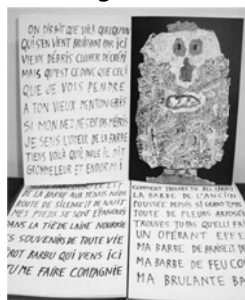 ON DIRAIT QUE VOILÀ QUELQU'UN
QUI S'EN VIENT BRUITANT PAR ICI
VIEUX DÉBRIS CLOCHER DÉCRÉPI
MAIS QU'EST CE DONC QUE CECI
QUE JE VOIS PENDRE
A TON VIEUX MENTON GRIS
SI MON NEZ NE S'EST PAS MÉPRIS
JE SENS L'ODEUR DE LA BARBE
TIENS VOILÀ QU'IL PARLE IL DIT
GROMMELEUR ET ENDORMI
ROUTE DE SILENCE ET DE NUIT
MES PIEDS SE SONT ÉPANOUIS
DANS LA TIÉDE LAINE NOURRIE
ES SOUVENIRS DE TOUTE VIE
TROT BARBU QUI VENS ICI
TU ME FAIRE COMPAGNIE
COMMENT TROUVES TU
LA BARBE DE L'ANCIEN
POUSSÉE DEPUIS SI GRAND TEMPS
TOUTE DE FLEURS ARROSÉE
TROUVES TU PAS QU'ELLE FAI
UN OPÉRANT EFFE
MA BARBE DE BRAISE ET DE
MA BARBE DE FEU CO
MA BRULANTE BA